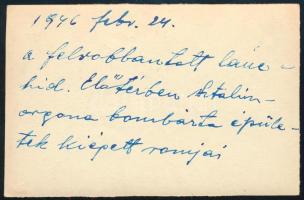 1946 febr. 24.
a felrobbantott lánc-
hid. Előtérben sztalin-
orgona bombázta épüle-
tek kiépett romjai